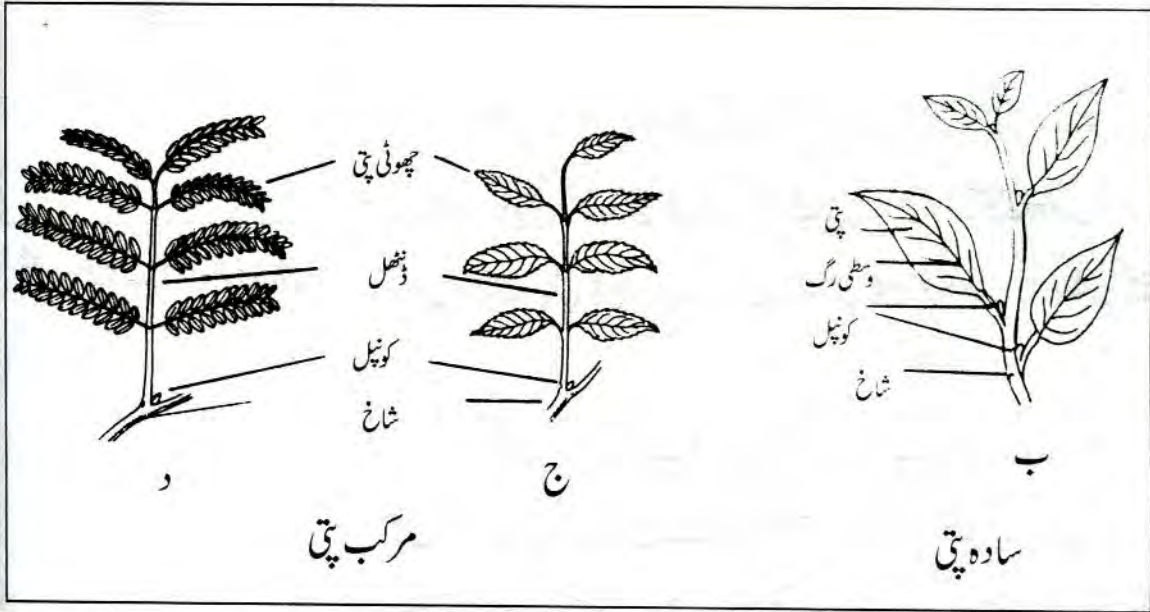 پتی
وسطی رگ
کونپل
شاخ
ب
سادہ پتی
چھوٹی پتی
ڈنٹھل
کونپل
شاخ
ج
د
مرکب پتی